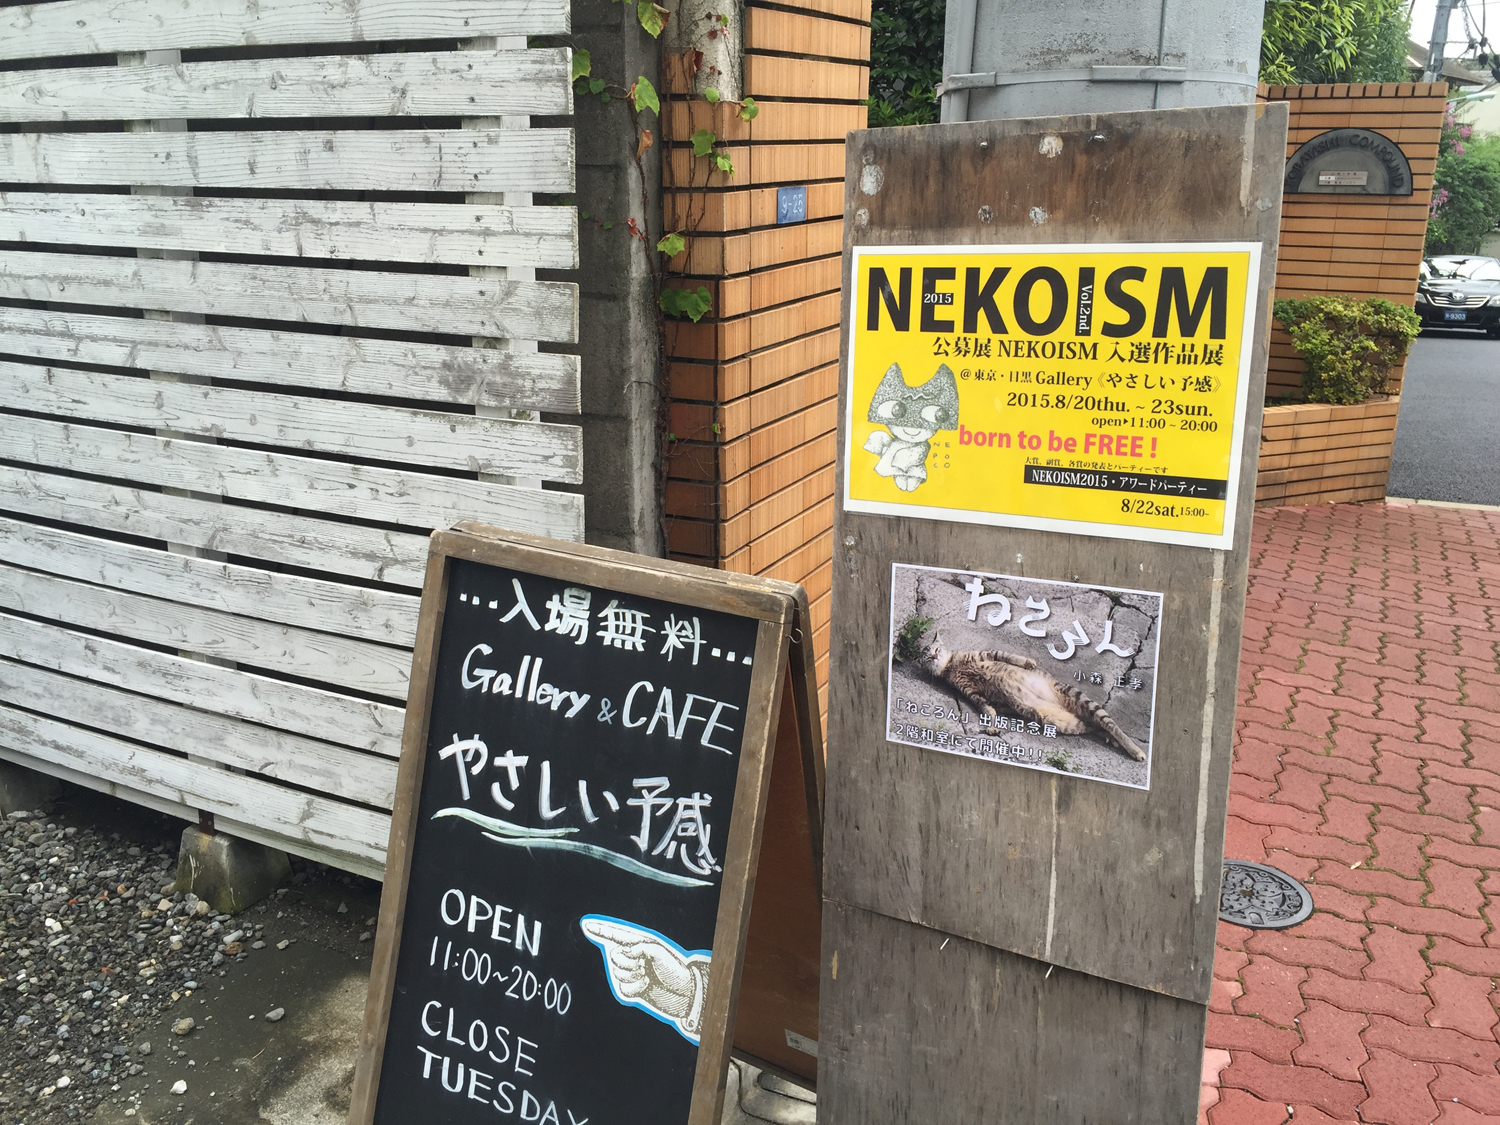 …入場無料…
Gallery & CAFE
やさしい予感
OPEN
11:00~20:00
CLOSE
TUESDAY
9-25
NEKOISM
2015
Vol.2nd.
公募展 NEKOISM 入選作品展
@東京・目黒 Gallery《やさしい予感》
2015.8/20thu. ~ 23sun.
open▶11:00 ~ 20:00
born to be FREE !
大賞、副賞、各賞の発表とパーティーです
NEKOISM2015・アワードパーティー
8/22sat.15:00~
ねころん
小森 正孝
「ねころん」出版記念展
2階和室にて開催中!!
COMPOUND